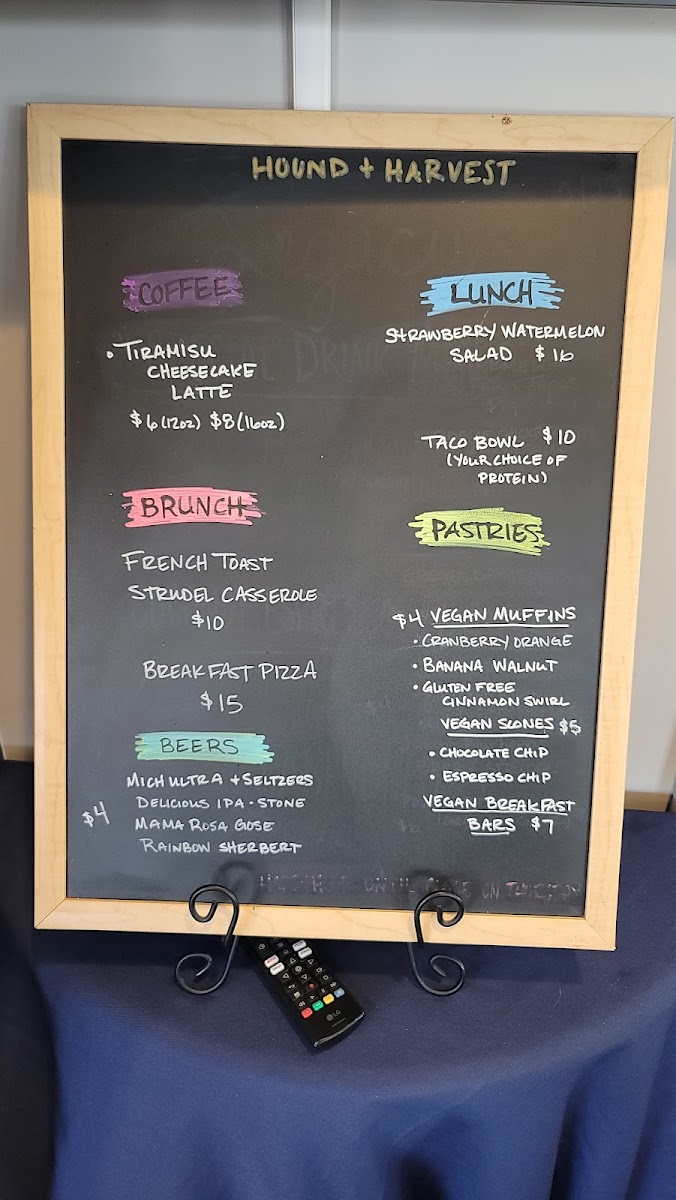 HOUND + HARVEST
COFFEE
• TIRAMISU
CHEESECAKE
LATTE
$6 (12oz) $8 (16oz)
BRUNCH
FRENCH TOAST
STRUDEL CASSEROLE
$10
BREAKFAST PIZZA
$15
BEERS
MICH ULTRA + SELTZERS
DELICIOUS IPA - STONE
$4 MAMA ROSA GOSE
RAINBOW SHERBERT
LUNCH
STRAWBERRY WATERMELON
SALAD $16
TACO BOWL $10
(YOUR CHOICE OF
PROTEIN)
PASTRIES
$4 VEGAN MUFFINS
• CRANBERRY ORANGE
• BANANA WALNUT
• GLUTEN FREE
CINNAMON SWIRL
VEGAN SCONES $5
• CHOCOLATE CHIP
• ESPRESSO CHIP
VEGAN BREAKFAST
BARS $7
LG